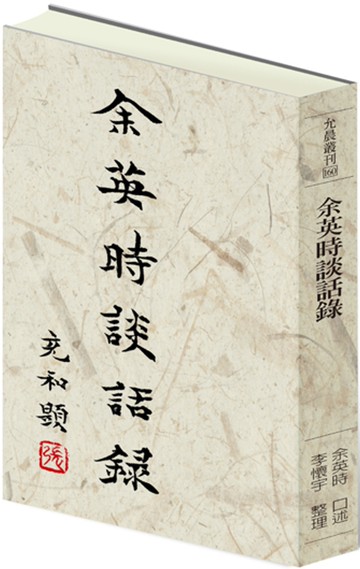 余英時談話錄
充和題
張
允晨叢刊 160
余英時談話錄
余英時 口述
李懷宇 整理